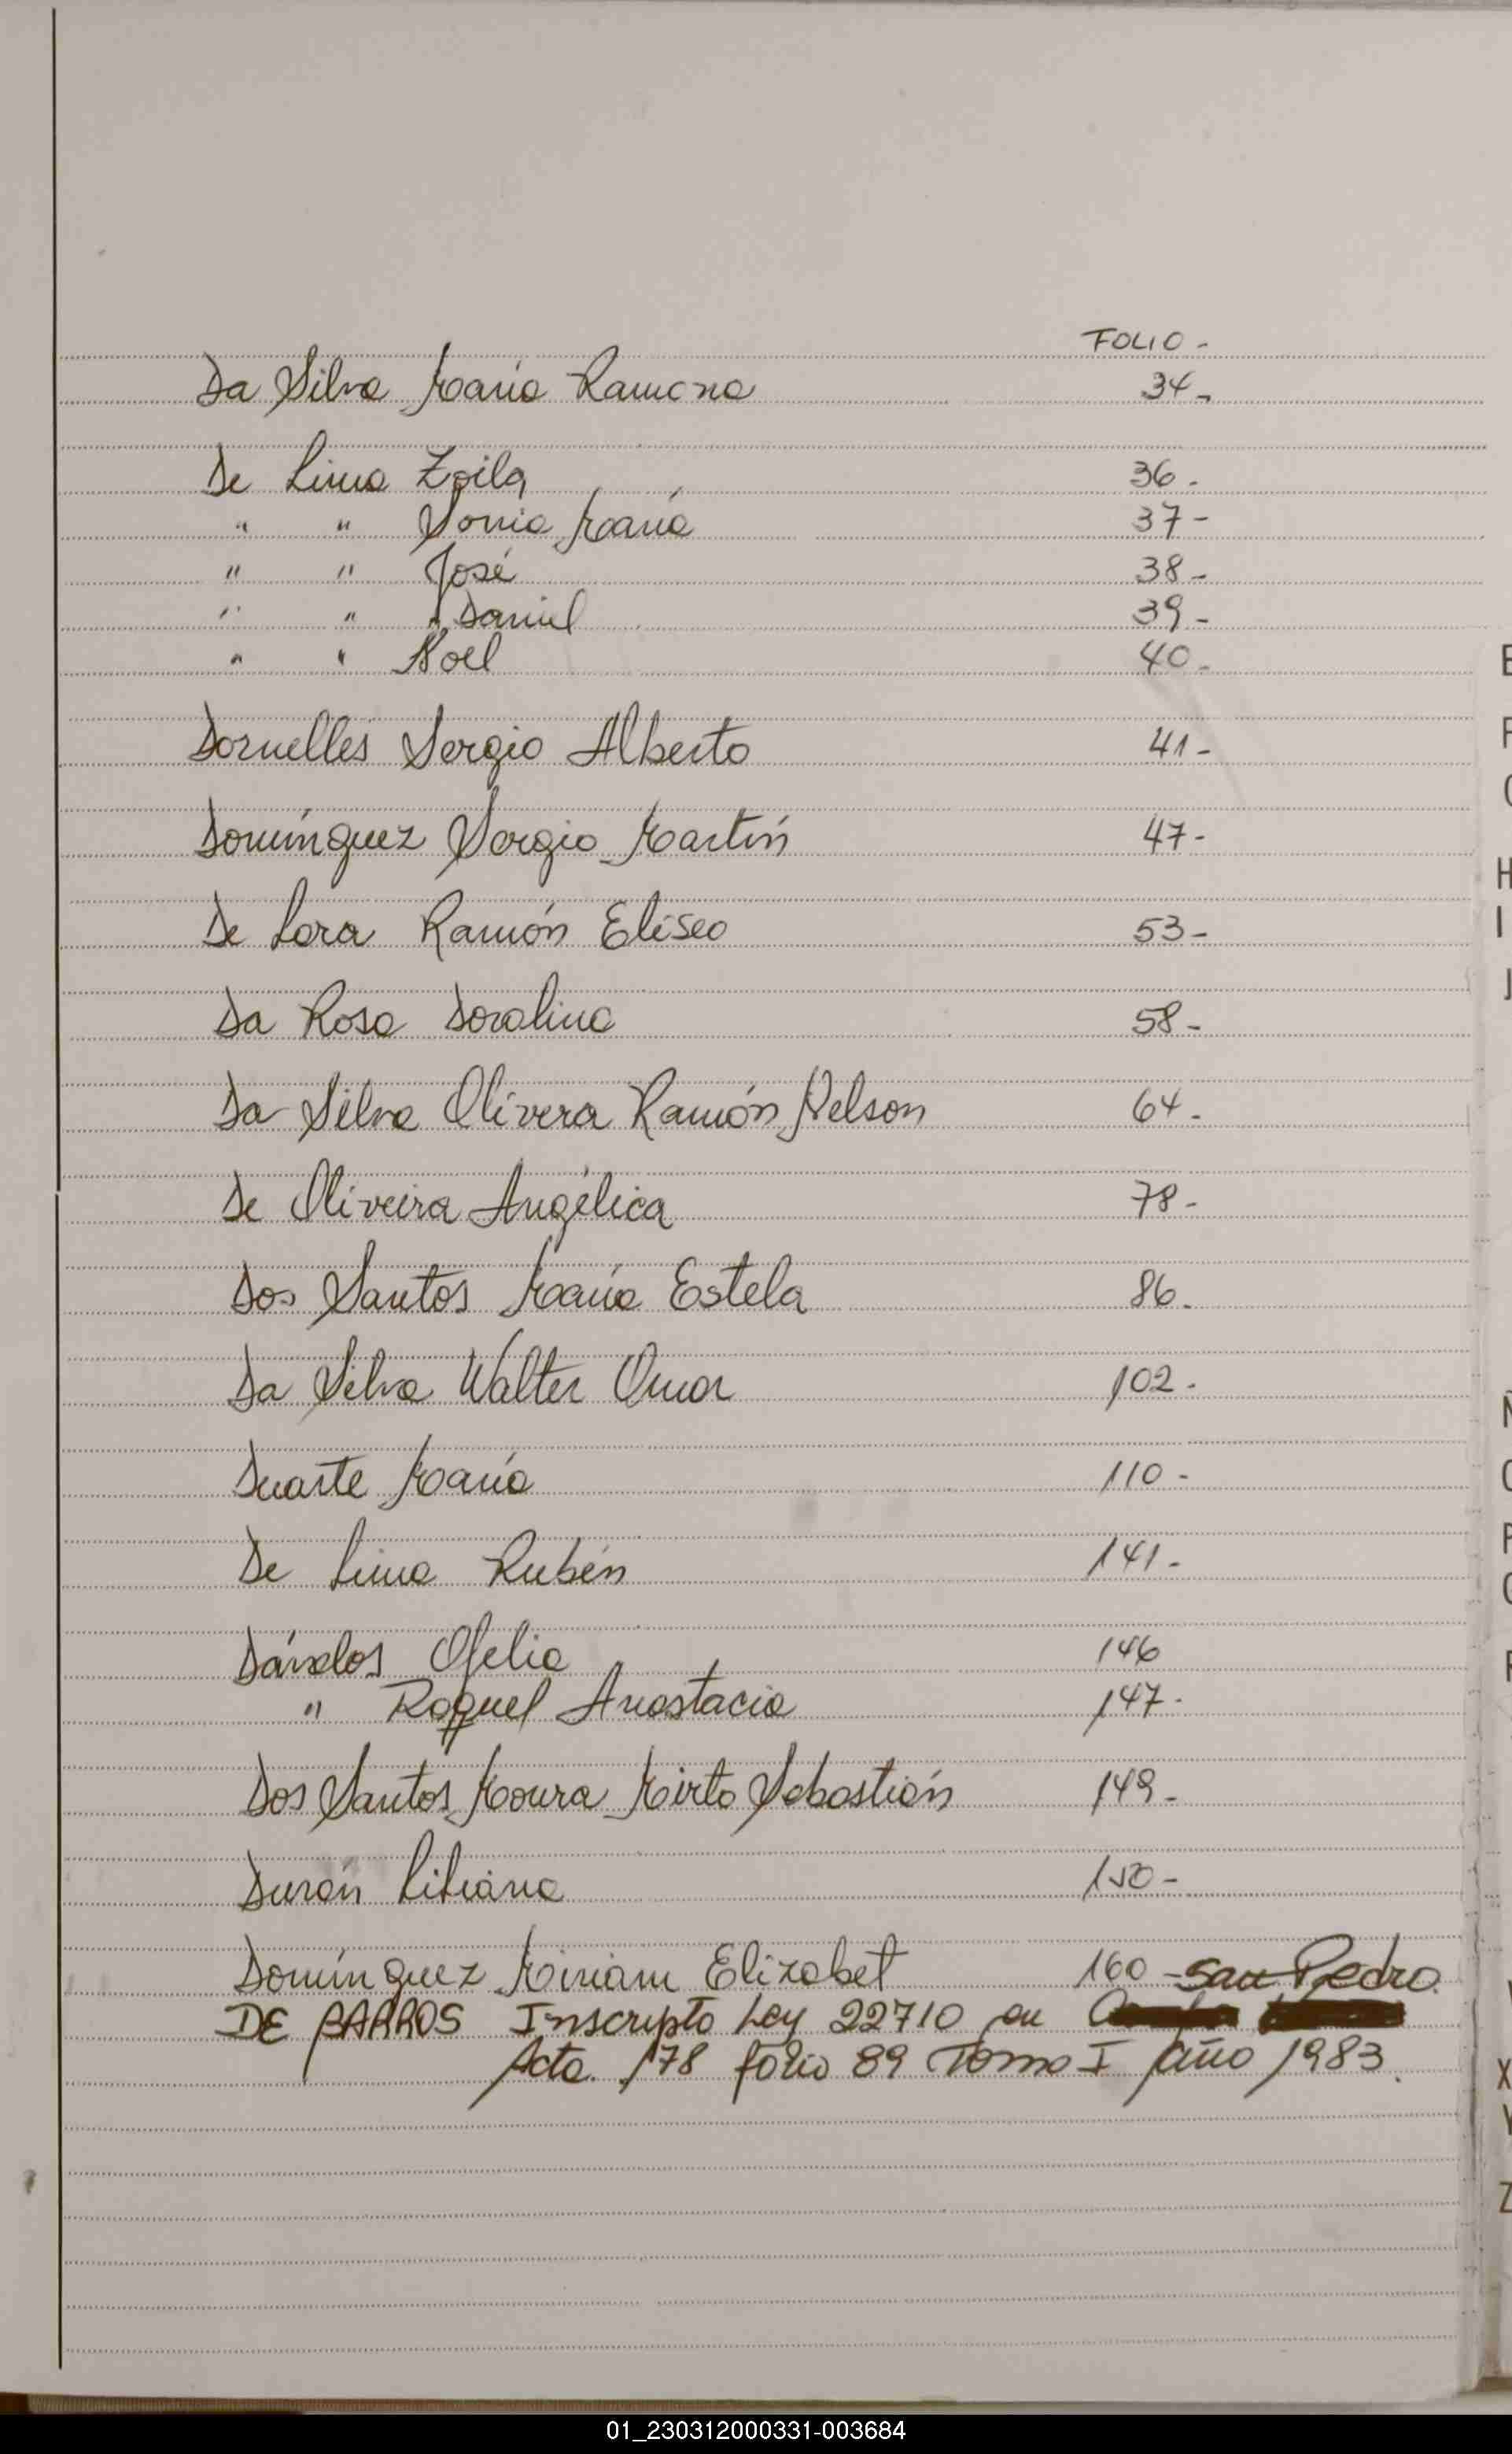 FOLIO-
Da Silva María Ramona 34-
De Lima Zoila 36-
" " Sonia María 37-
" " José 38-
" " Daniel 39-
" " Noel 40-
Dornelles Sergio Alberto 41-
Domínguez Sergio Martín 47-
De Lora Ramón Eliseo 53-
Da Rosa Doralina 58-
Da Silva Olivera Ramón Nelson 64-
De Oliveira Angélica 78-
Dos Santos María Estela 86-
Da Silva Walter Omar 102-
Duarte María 110-
De Lima Rubén 141-
Dávalos Ofelia 146
" Raquel Anastacia 147-
Dos Santos Moura Mirto Sebastián 149-
Durán Liliana 150-
Domínguez Miriam Elizabet 160- San Pedro
DE BARROS Inscripto Ley 22710 en
Acta 178 folio 89 Tomo I año 1983.
E
F
G
H
I
J
Ñ
O
P
Q
R
X
Y
Z
01_230312000331-003684